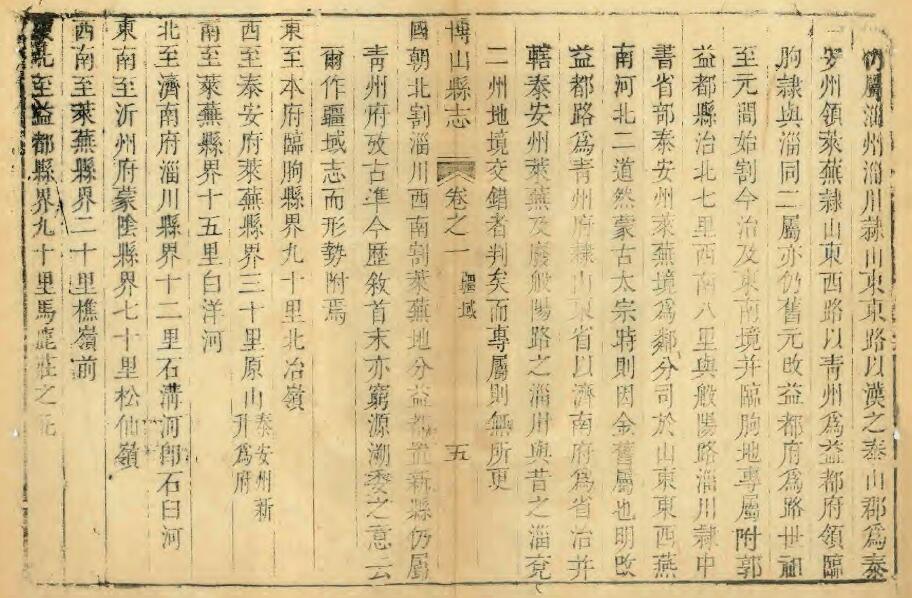 仍屬淄州淄川隸山東東路以漢之泰山郡爲泰
安州領萊蕪隸山東西路以青州爲益都府領臨
朐隸與淄同二屬亦仍舊元改益都府爲路世祖
至元間始割今治及東南境并臨朐地專屬附郭
益都縣治北七里西南八里與般陽路淄川隸中
書省部泰安州萊蕪境爲鄰分司於山東東西燕
南河北二道然蒙古太宗時則因金舊屬也明改
益都路爲青州府隸山東省以濟南府爲省治并
轄泰安州萊蕪及廢般陽路之淄川與昔之淄兗
二州地境交錯者判矣而專屬則無所更
博山縣志 卷之一 疆域 五
國朝北割淄川西南割萊蕪地分益都置新縣仍屬
青州府攷古準今歷敘首末亦窮源溯委之意云
爾作疆域志而形勢附焉
東至本府臨朐縣界九十里北冶嶺
西至泰安府萊蕪縣界三十里原山泰安州新升爲府
南至萊蕪縣界十五里白洋河
北至濟南府淄川縣界十二里石溝河卽石臼河
東南至沂州府蒙陰縣界七十里松仙嶺
西南至萊蕪縣界二十里樵嶺前
東北至益都縣界九十里馬鹿莊之北